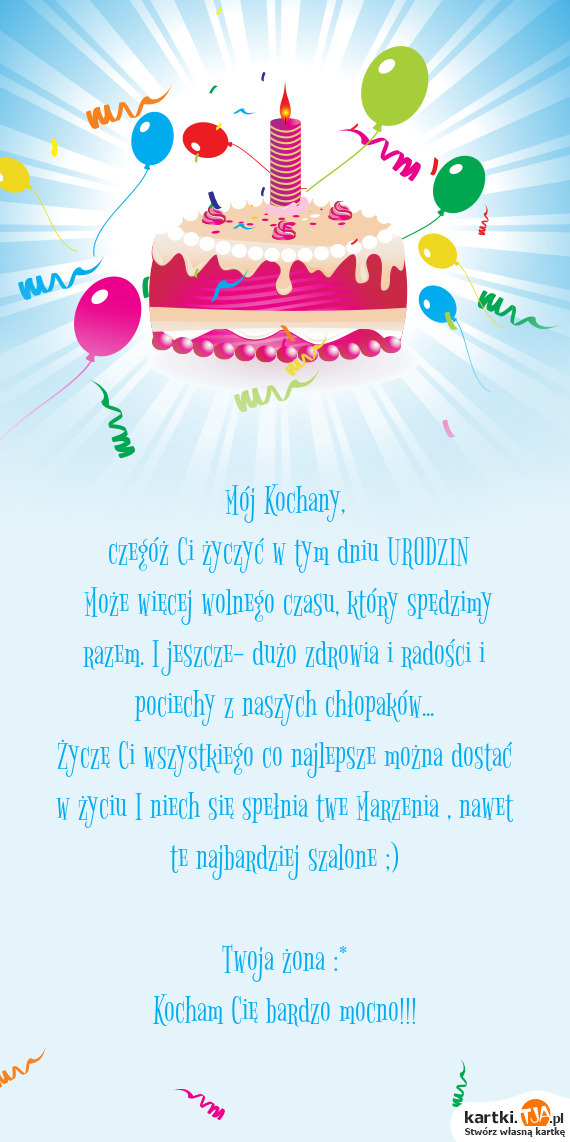 Mój Kochany,
czegóż Ci życzyć w tym dniu URODZIN
Może więcej wolnego czasu, który spędzimy
razem. I jeszcze- dużo zdrowia i radości i
pociechy z naszych chłopaków...
Życzę Ci wszystkiego co najlepsze można dostać
w życiu I niech się spełnia twe Marzenia , nawet
te najbardziej szalone ;)
Twoja żona :*
Kocham Cię bardzo mocno!!!
kartki.TJA.pl
Stwórz własną kartkę